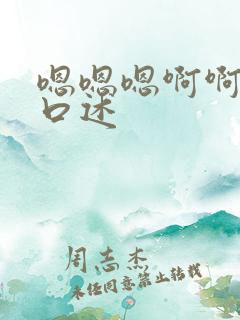 嗯嗯嗯啊啊
口述
周志杰
未经同意禁止转载